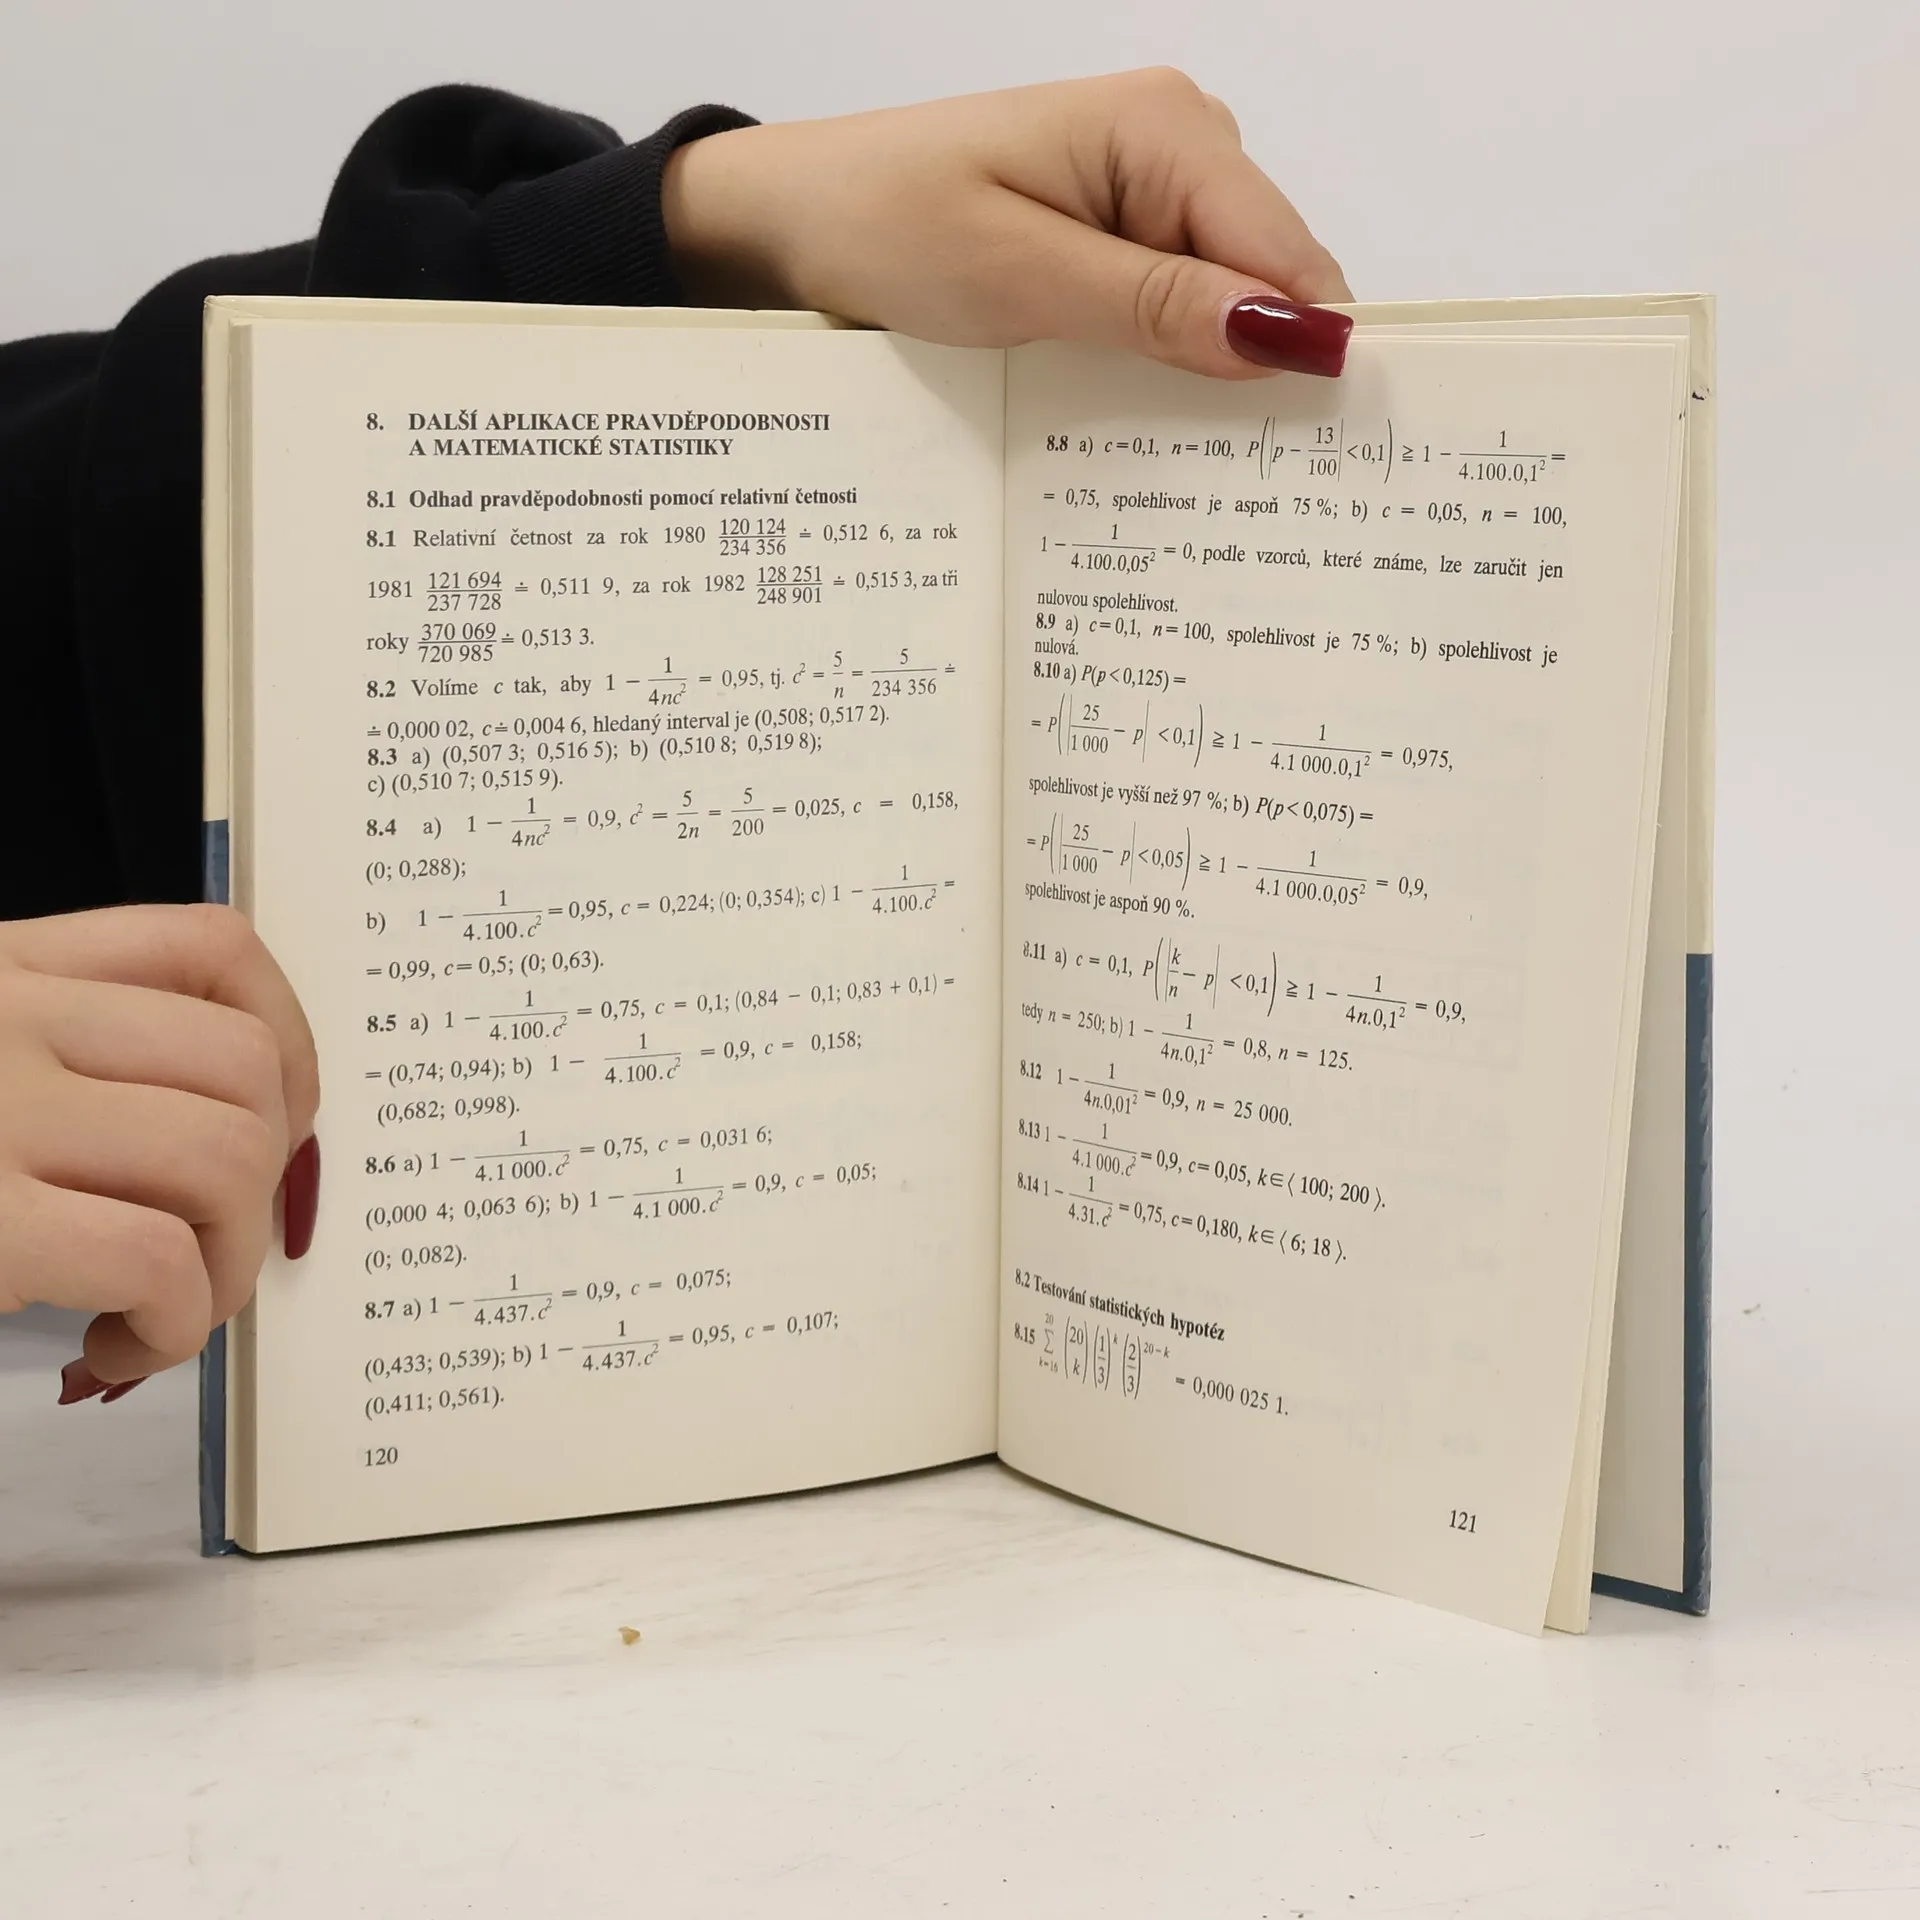 8. DALŠÍ APLIKACE PRAVDĚPODOBNOSTI
A MATEMATICKÉ STATISTIKY
8.1 Odhad pravděpodobnosti pomocí relativní četnosti
8.1 Relativní četnost za rok 1980 120 124/234 356 ≐ 0,512 6, za rok
1981 121 694/237 728 ≐ 0,511 9, za rok 1982 128 251/248 901 ≐ 0,515 3, za tři
roky 370 069/720 985 ≐ 0,513 3.
8.2 Volíme c tak, aby 1 − 1/4nc² = 0,95, tj. c² = 5/n = 5/234 356 ≐
≐ 0,000 02, c ≐ 0,004 6, hledaný interval je (0,508; 0,517 2).
8.3 a) (0,507 3; 0,516 5); b) (0,510 8; 0,519 8);
c) (0,510 7; 0,515 9).
8.4 a) 1 − 1/4nc² = 0,9, c² = 5/2n = 5/200 = 0,025, c = 0,158,
(0; 0,288);
b) 1 − 1/4.100.c² = 0,95, c = 0,224; (0; 0,354); c) 1 − 1/4.100.c² =
= 0,99, c = 0,5; (0; 0,63).
8.5 a) 1 − 1/4.100.c² = 0,75, c = 0,1; (0,84 − 0,1; 0,83 + 0,1) =
= (0,74; 0,94); b) 1 − 1/4.100.c² = 0,9, c = 0,158;
(0,682; 0,998).
8.6 a) 1 − 1/4.1 000.c² = 0,75, c = 0,031 6;
(0,000 4; 0,063 6); b) 1 − 1/4.1 000.c² = 0,9, c = 0,05;
(0; 0,082).
8.7 a) 1 − 1/4.437.c² = 0,9, c = 0,075;
(0,433; 0,539); b) 1 − 1/4.437.c² = 0,95, c = 0,107;
(0,411; 0,561).
120
8.8 a) c = 0,1, n = 100, P(|p − 13/100| < 0,1) ≧ 1 − 1/4.100.0,1² =
= 0,75, spolehlivost je aspoň 75 %; b) c = 0,05, n = 100,
1 − 1/4.100.0,05² = 0, podle vzorců, které známe, lze zaručit jen
nulovou spolehlivost.
8.9 a) c = 0,1, n = 100, spolehlivost je 75 %; b) spolehlivost je
nulová.
8.10 a) P(p < 0,125) =
= P(|25/1 000 − p| < 0,1) ≧ 1 − 1/4.1 000.0,1² = 0,975,
spolehlivost je vyšší než 97 %; b) P(p < 0,075) =
= P(|25/1 000 − p| < 0,05) ≧ 1 − 1/4.1 000.0,05² = 0,9,
spolehlivost je aspoň 90 %.
8.11 a) c = 0,1, P(|k/n − p| < 0,1) ≧ 1 − 1/4n.0,1² = 0,9,
tedy n = 250; b) 1 − 1/4n.0,1² = 0,8, n = 125.
8.12 1 − 1/4n.0,01² = 0,9, n = 25 000.
8.13 1 − 1/4.1 000.c² = 0,9, c = 0,05, k ∈ ⟨ 100; 200 ⟩.
8.14 1 − 1/4.31.c² = 0,75, c = 0,180, k ∈ ⟨ 6; 18 ⟩.
8.2 Testování statistických hypotéz
8.15 ∑_{k=16}^{20} (20 k) (1/3)^k (2/3)^{20−k} = 0,000 025 1.
121